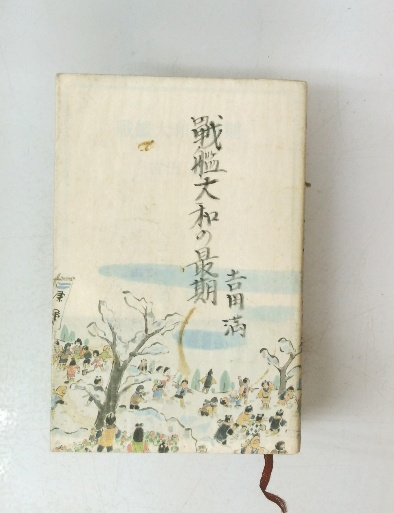 戰艦大和の最期
吉田満